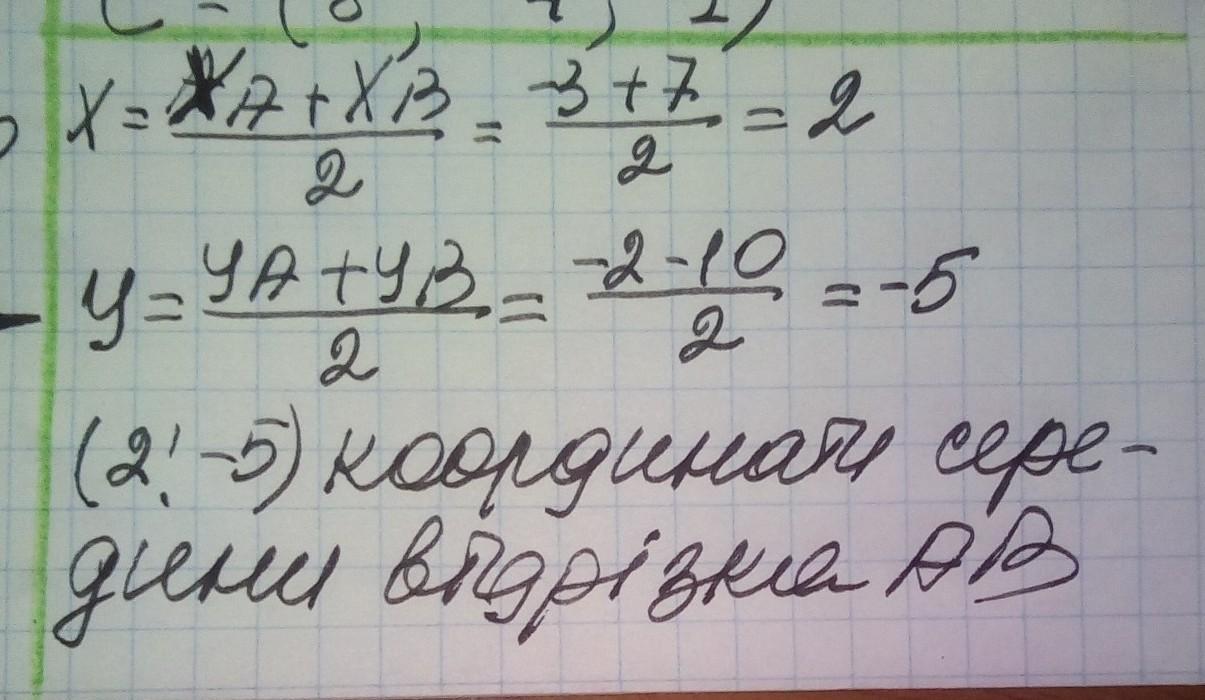 x = (xA + xB)/2 = (-3 + 7)/2 = 2
y = (yA + yB)/2 = (-2 - 10)/2 = -5
(2; -5) координати сере-
дини відрізка AB